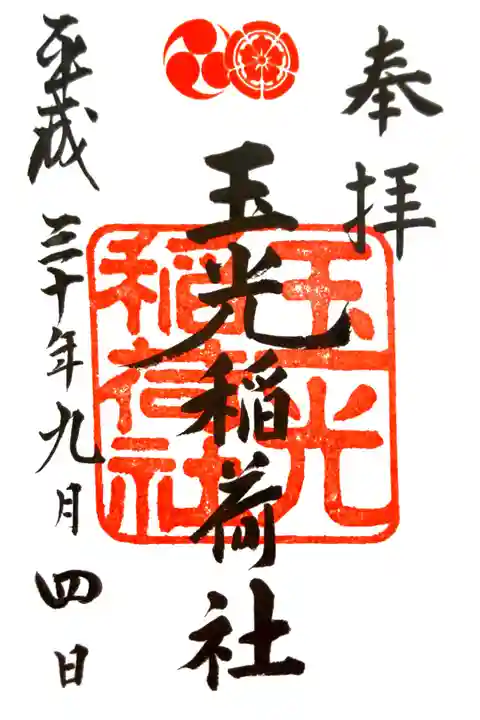 奉拝
玉光稲荷社
玉光
稲荷社
平成三十年九月四日